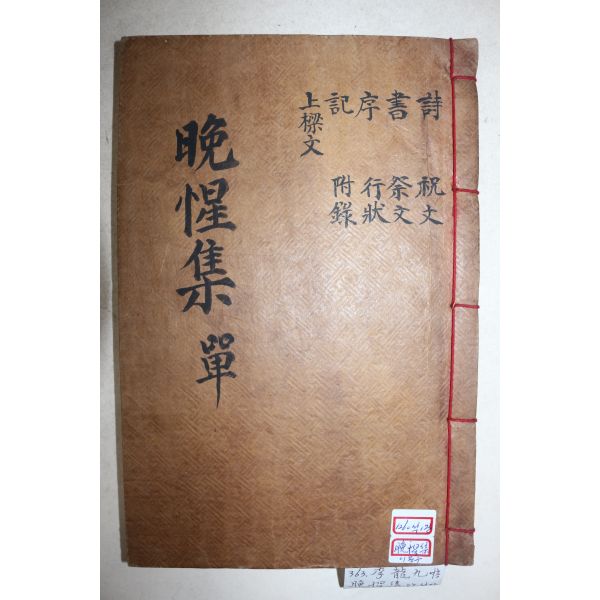 詩 祝文
書 祭文
序 行狀
記 附錄
上樑文
晩惺集 單
晩惺集
363. 李龍九